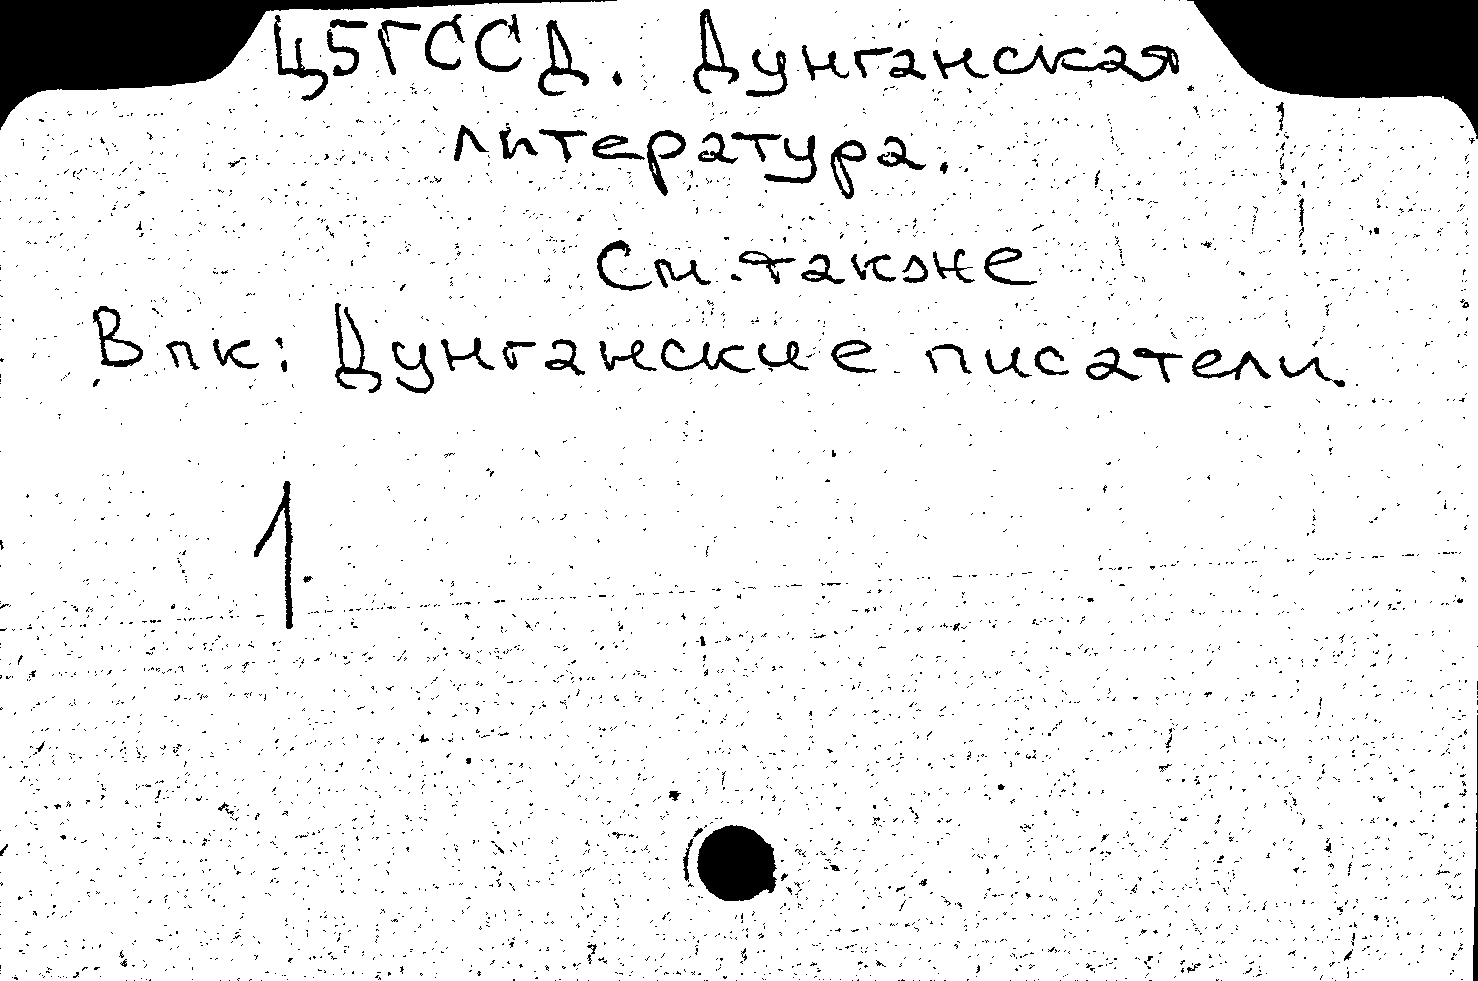 Ц5ГССД. Дунганская
литература.
См. также
В пк: Дунганские писатели.
1